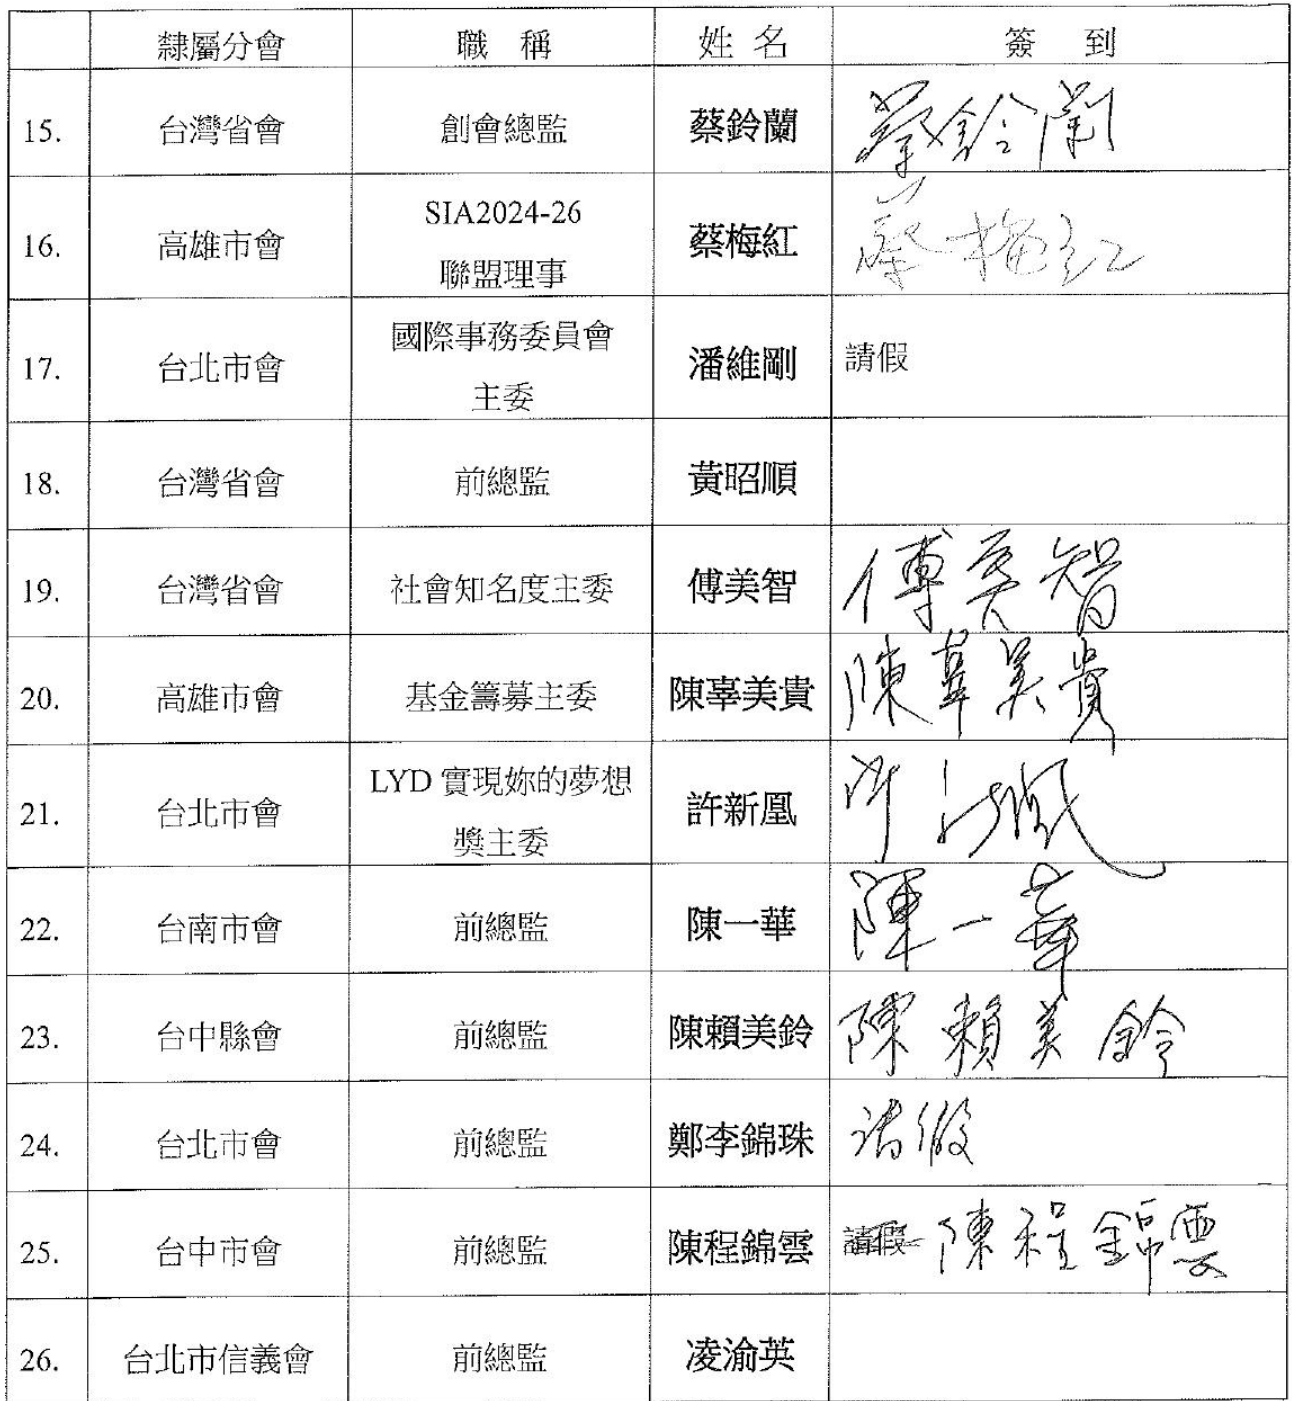 隸屬分會 職 稱 姓 名 簽 到
15. 台灣省會 創會總監 蔡鈴蘭 蔡鈴蘭
16. 高雄市會 SIA2024-26 聯盟理事 蔡梅紅 蔡梅紅
17. 台北市會 國際事務委員會 主委 潘維剛 請假
18. 台灣省會 前總監 黃昭順
19. 台灣省會 社會知名度主委 傅美智 傅美智
20. 高雄市會 基金籌募主委 陳辜美貴 陳辜美貴
21. 台北市會 LYD 實現妳的夢想 獎主委 許新凰 許新凰
22. 台南市會 前總監 陳一華 陳一華
23. 台中縣會 前總監 陳賴美鈴 陳賴美鈴
24. 台北市會 前總監 鄭李錦珠 請假
25. 台中市會 前總監 陳程錦雲 請假 陳程錦雲
26. 台北市信義會 前總監 凌渝英